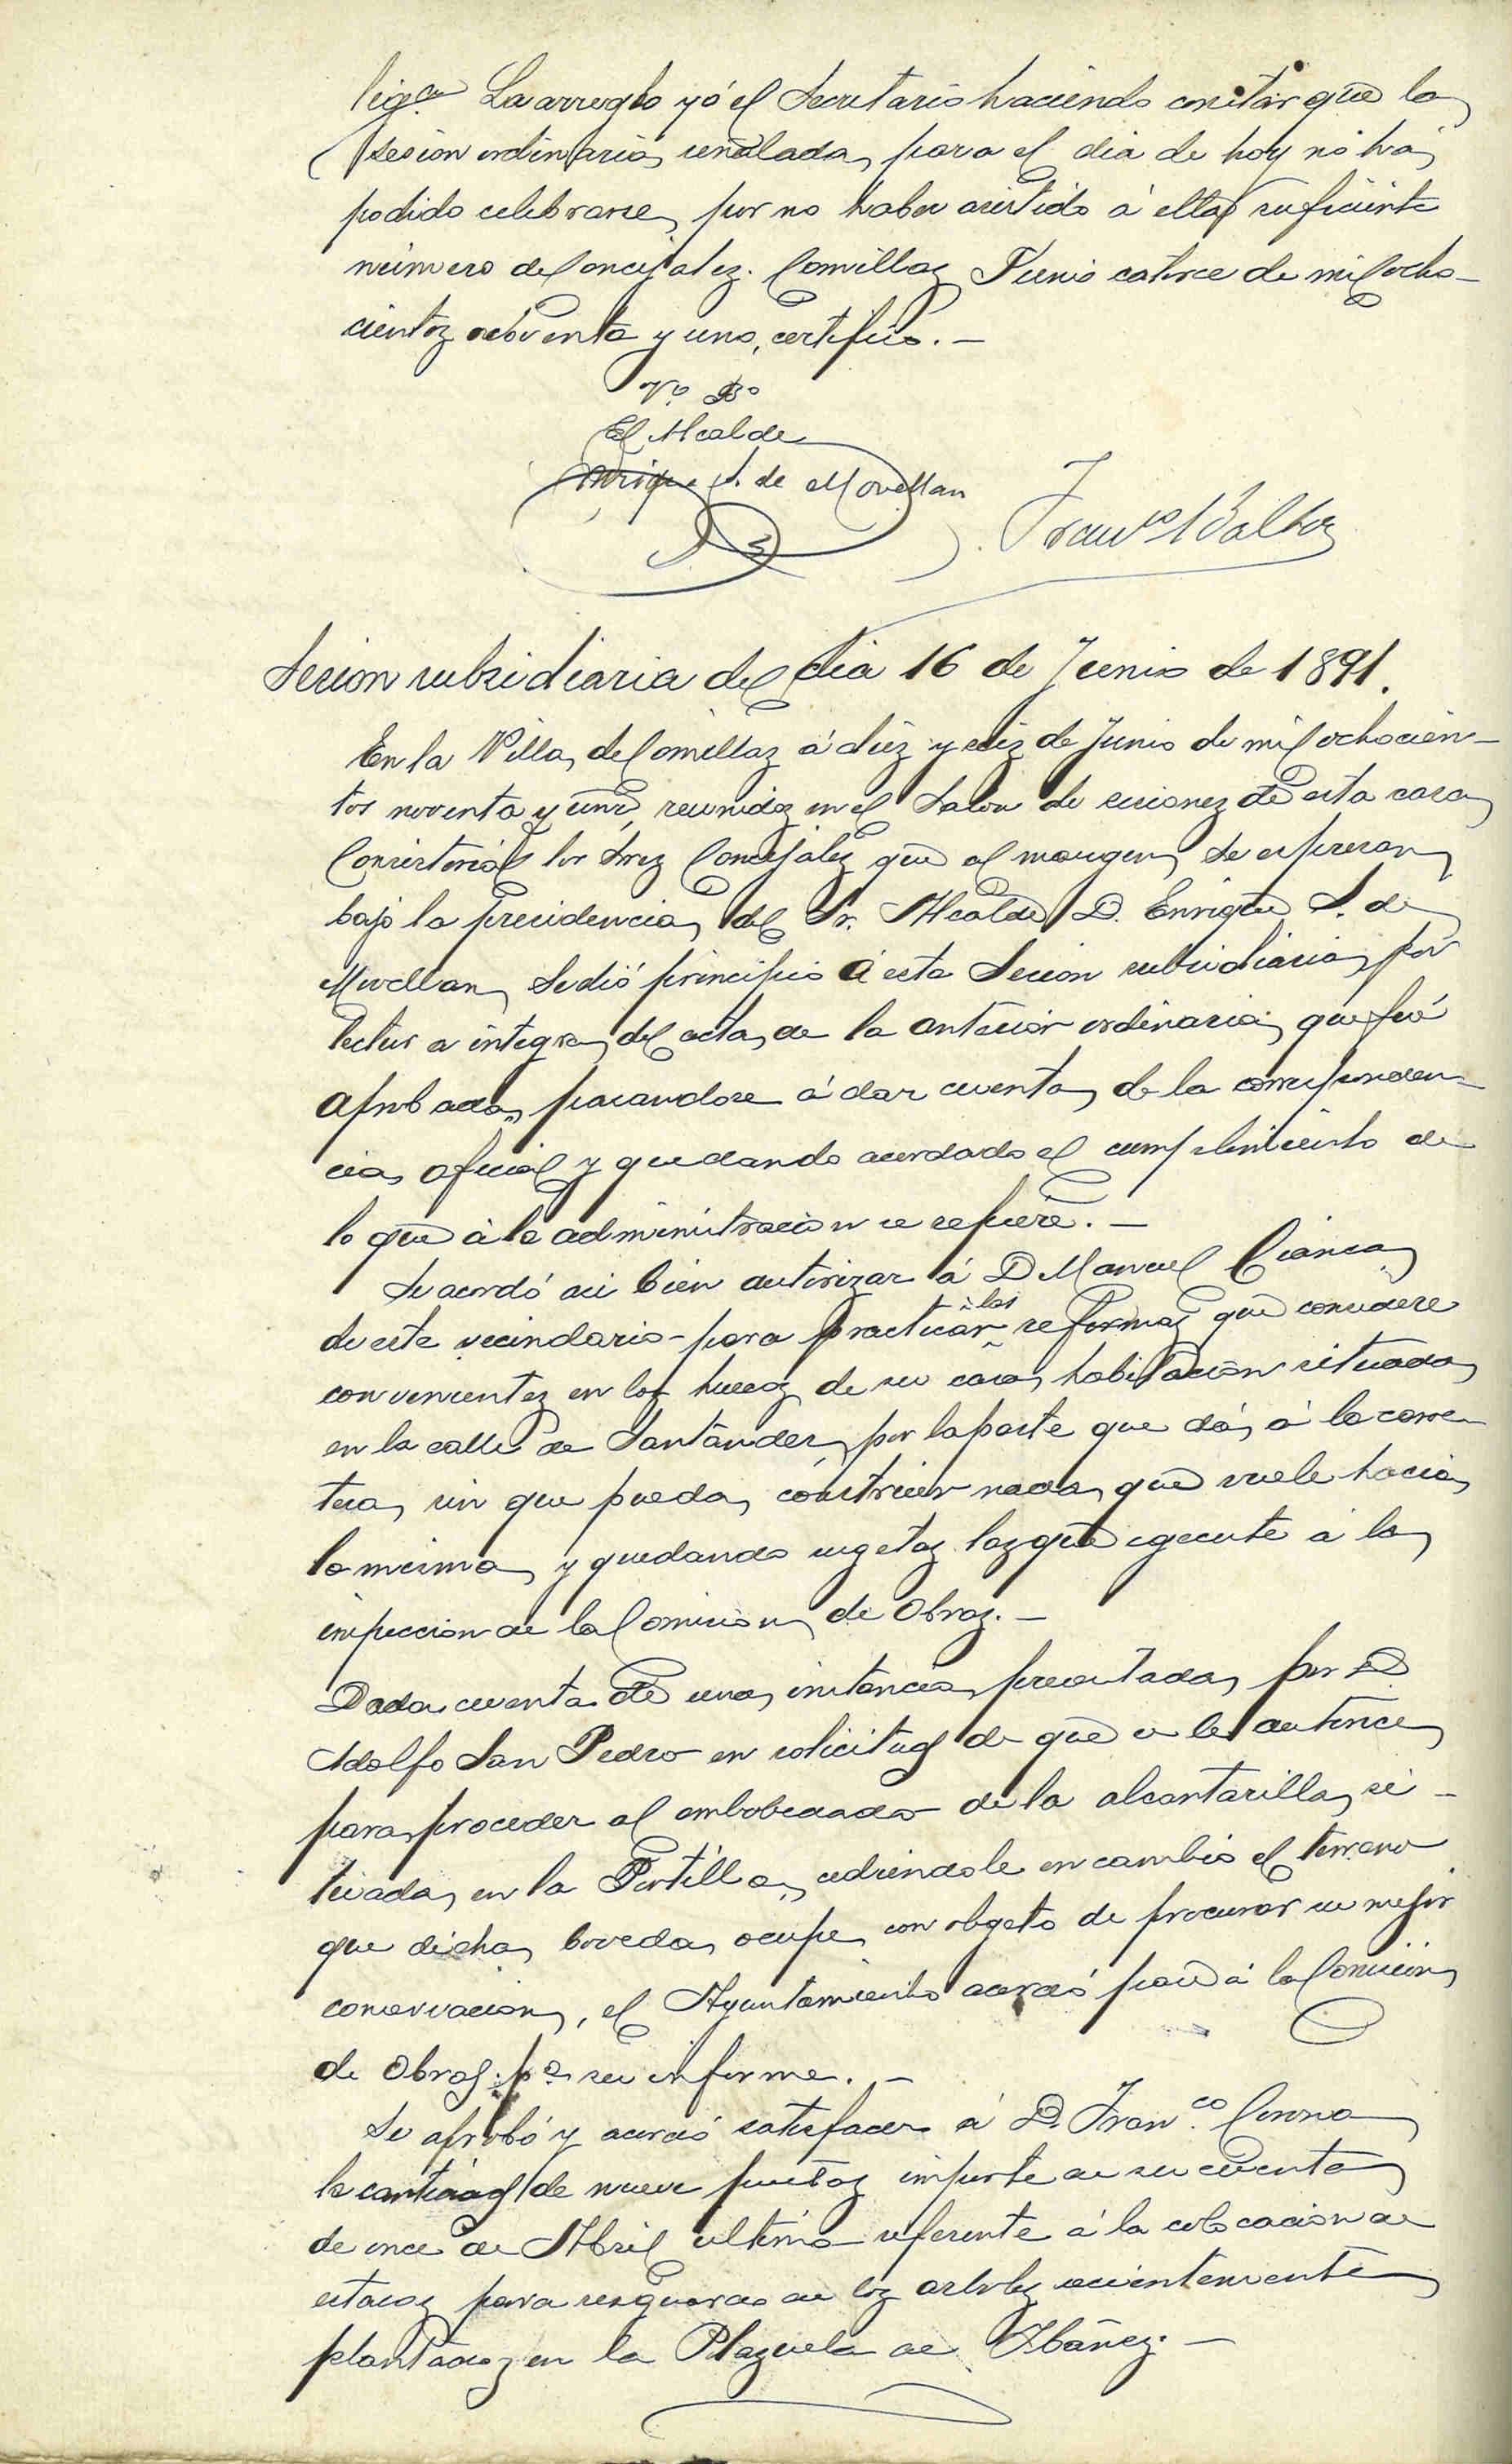 lig.ª La arreglo yo el Secretario haciendo constar que la
sesion ordinaria señalada, para el dia de hoy no há
podido celebrarse, por no haber asistido á ella suficiente
número de Concejales. Comillas Junio catorce de mil ocho-
cientos noventa y uno, certifico.-
Vº Bº
El Alcalde
Enrique S. de Movellan
Franco Balbas
Sesion subsidiaria del dia 16 de Junio de 1891.
En la Villa de Comillas á diez y seis de Junio de mil ochocien-
tos noventa y uno, reunidos en el Salon de sesiones de esta casa
Consistorial los Sres Concejales que al margen se espresan
bajo la presidencia del Sr. Alcalde D. Enrique S. de
Movellan, se dió principio á esta Sesion subsidiaria, por
lectura integra del acta de la anterior ordinaria, que fué
aprobada, pasandose á dar cuenta de la corresponden-
cia oficial y quedando acordado el cumplimiento de
lo que á la administracion se refiere.-
Se acordó asi bien autorizar á D. Manuel Cianca
de este vecindario para practicar las reformas que considere
convenientes en los huecos de su casa habitacion situada
en la calle de Santander, por la parte que dá, á la carre-
tera, sin que pueda construir nada que vuele hacia
la misma, y quedando sugetas las que egecute á la
inspeccion de la Comision de Obras.-
Dada cuenta de una instancia presentada por D.
Adolfo San Pedro en solicitud de que se le autorice
para proceder al embobedado de la alcantarilla, si-
tuada en la Portilla, cediendole en cambio el terreno
que dicha boveda ocupe, con objeto de procurar su mejor
conservacion, el Ayuntamiento acordó pase á la Comision
de Obras pª su informe.-
Se aprobó y acordó satisfacer á D. Fran.co
la cantidad de nueve pesetas importe de su cuenta
de once de Abril último referente á la colocacion de
estacas para resguardo de los arboles recientemente
plantados en la Plazuela de Ibáñez.-